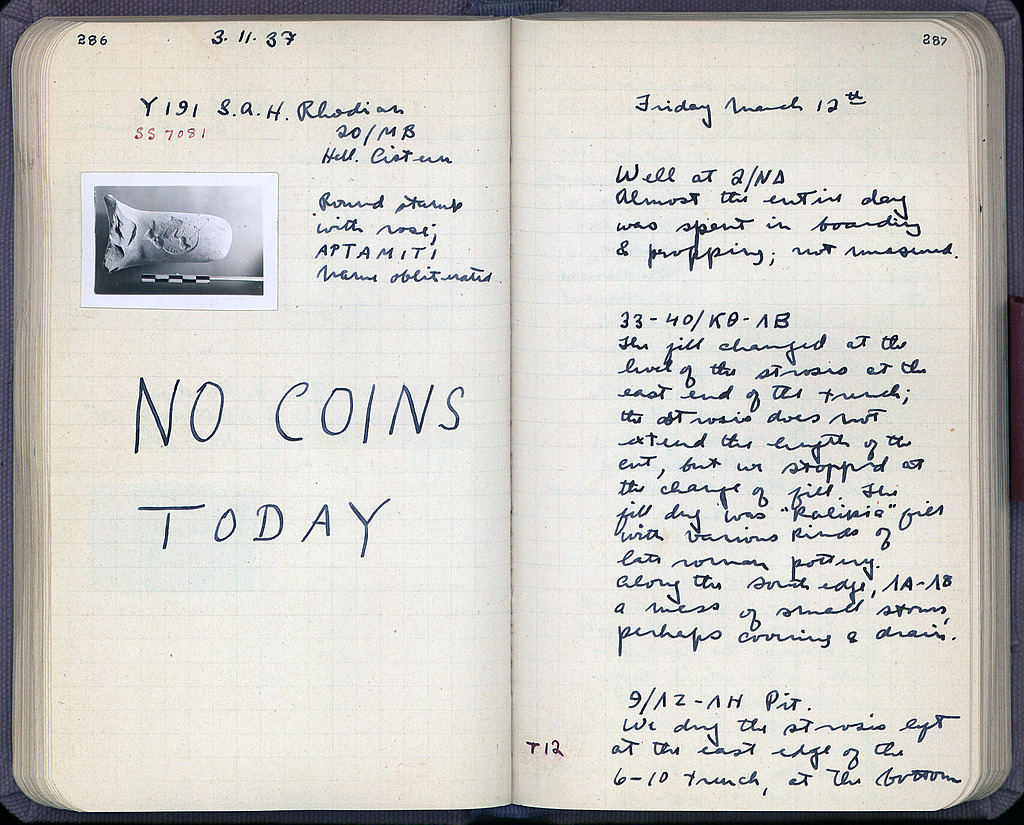 286
3.11.37
Y 191 S.A.H. Rhodian
SS 7081
20/MB
Hell. Cistern
Round stamp
with rose;
ΑΡΤΑΜΙΤΙ
name obliterated.
NO COINS
TODAY
287
Friday March 12th
Well at 2/ΝΔ
Almost the entire day
was spent in boarding
& propping; not measured.
33-40/ΚΘ-ΛΒ
The fill changed at the
level of the strosis at the
east end of the trench;
the strosis does not
extend the length of the
cut, but we stopped at
the change of fill. The
fill dug was "Kalikia" fill
with various kinds of
late roman pottery.
Along the south edge, ΛΑ-ΛΒ
a mess of small stones,
perhaps covering a drain.
9/ΛΖ-ΛΗ Pit.
We dug the strosis left
T12
at the east edge of the
6-10 trench, at the bottom